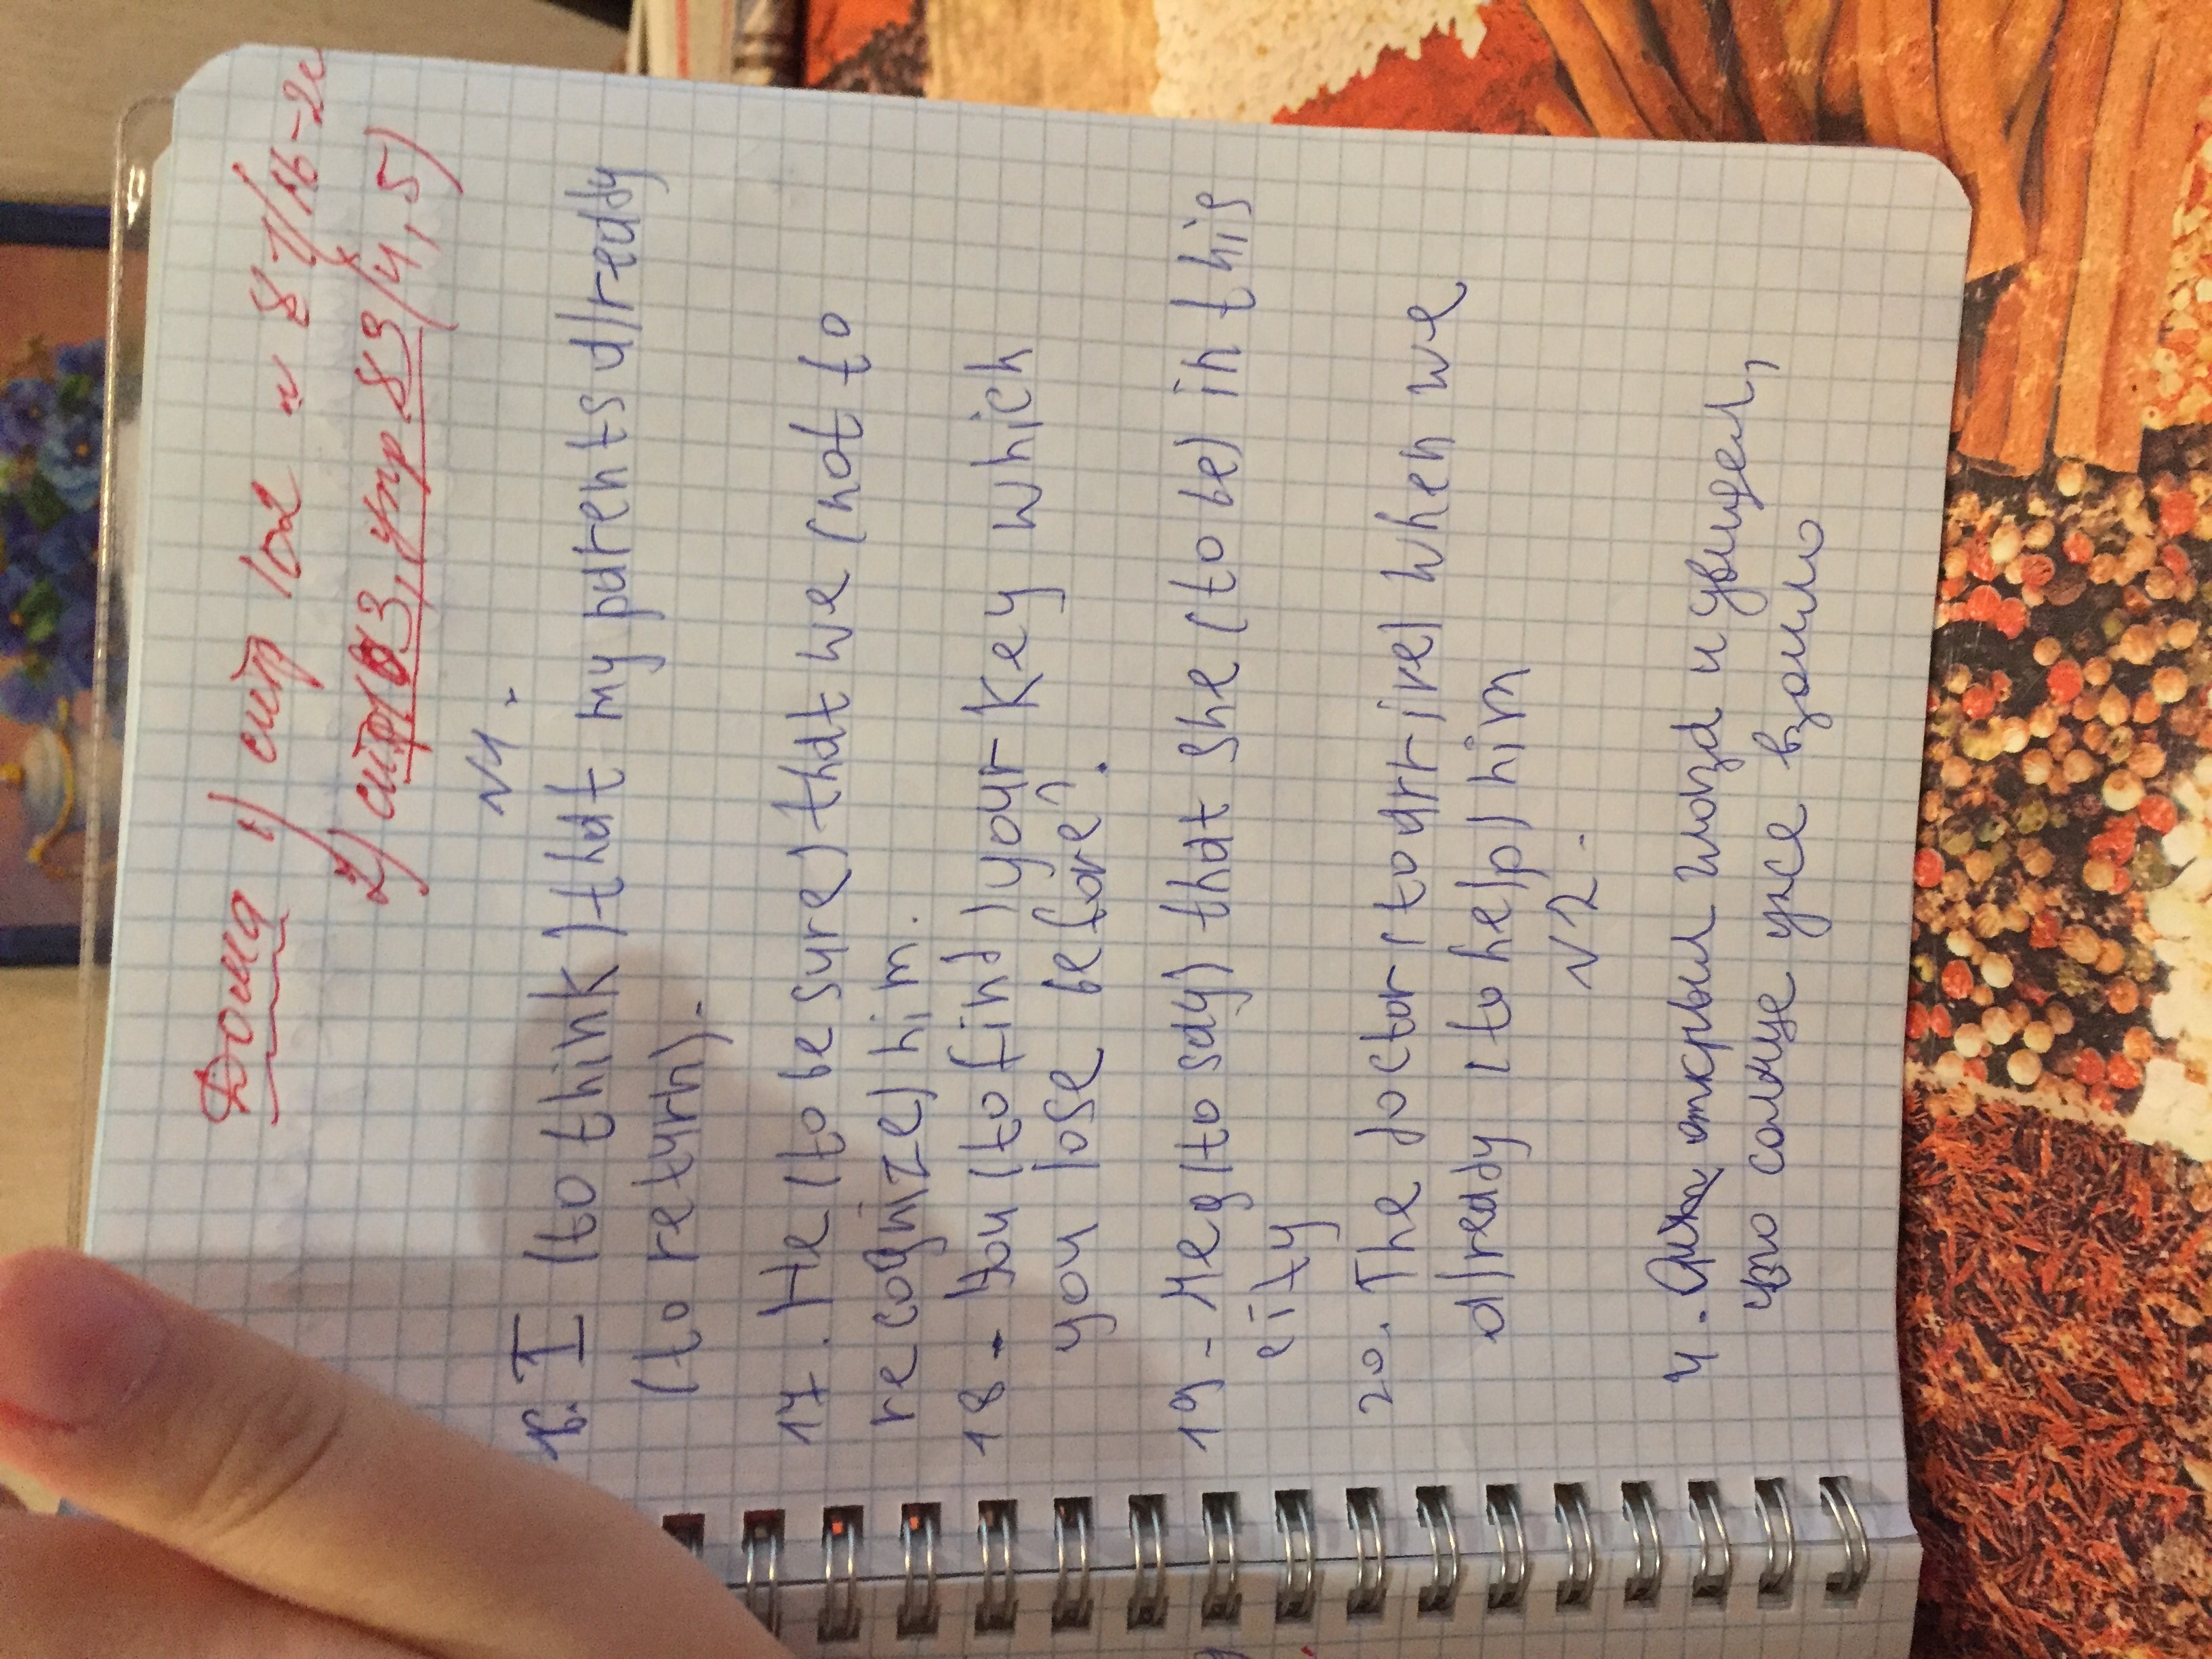 Дома 1) стр 102 N 81/16-20
2) стр 103, упр 83/4,5)
N1.
16. I (to think) that my parents already
(to return).
17. He (to be sure) that we (not to
recognize) him.
18. You (to find) your key which
you lose before?.
19. Meg (to say) that she (to be) in this
city
20. The doctor (to arrive) when we
already (to help) him
N2.
4. открыл глаза и увидел,
что солнце уже взошло